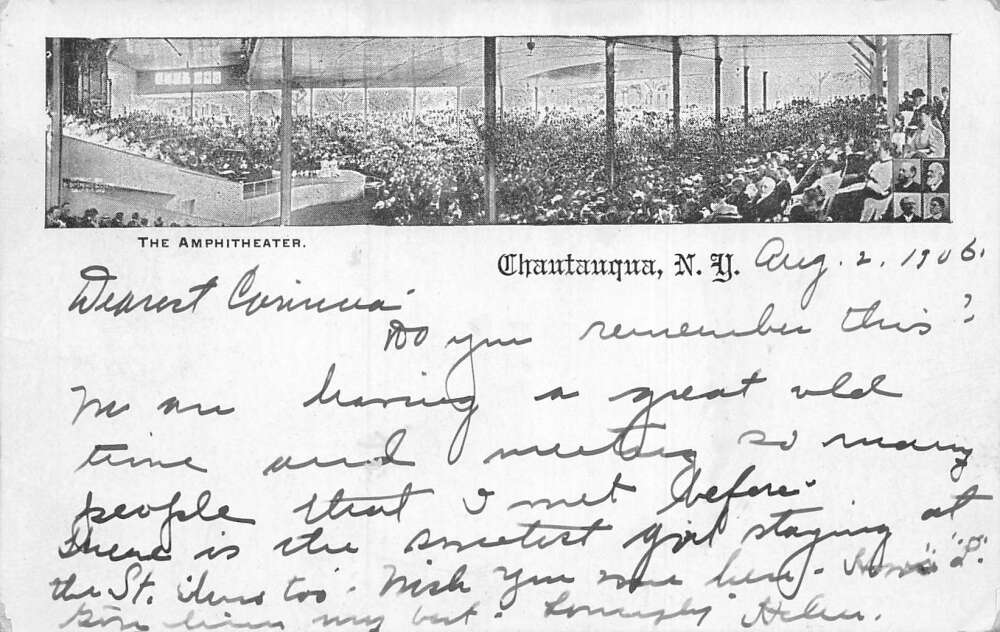 THE AMPHITHEATER.
Chautauqua, N. Y. Aug. 2, 1906.
Dearest Corinna
Do you remember this?
We are having a great old
time and meeting so many
people that I met before.
There is the sweetest girl staying at
the St. too. Wish you were here.
my best. Lovingly Helen.